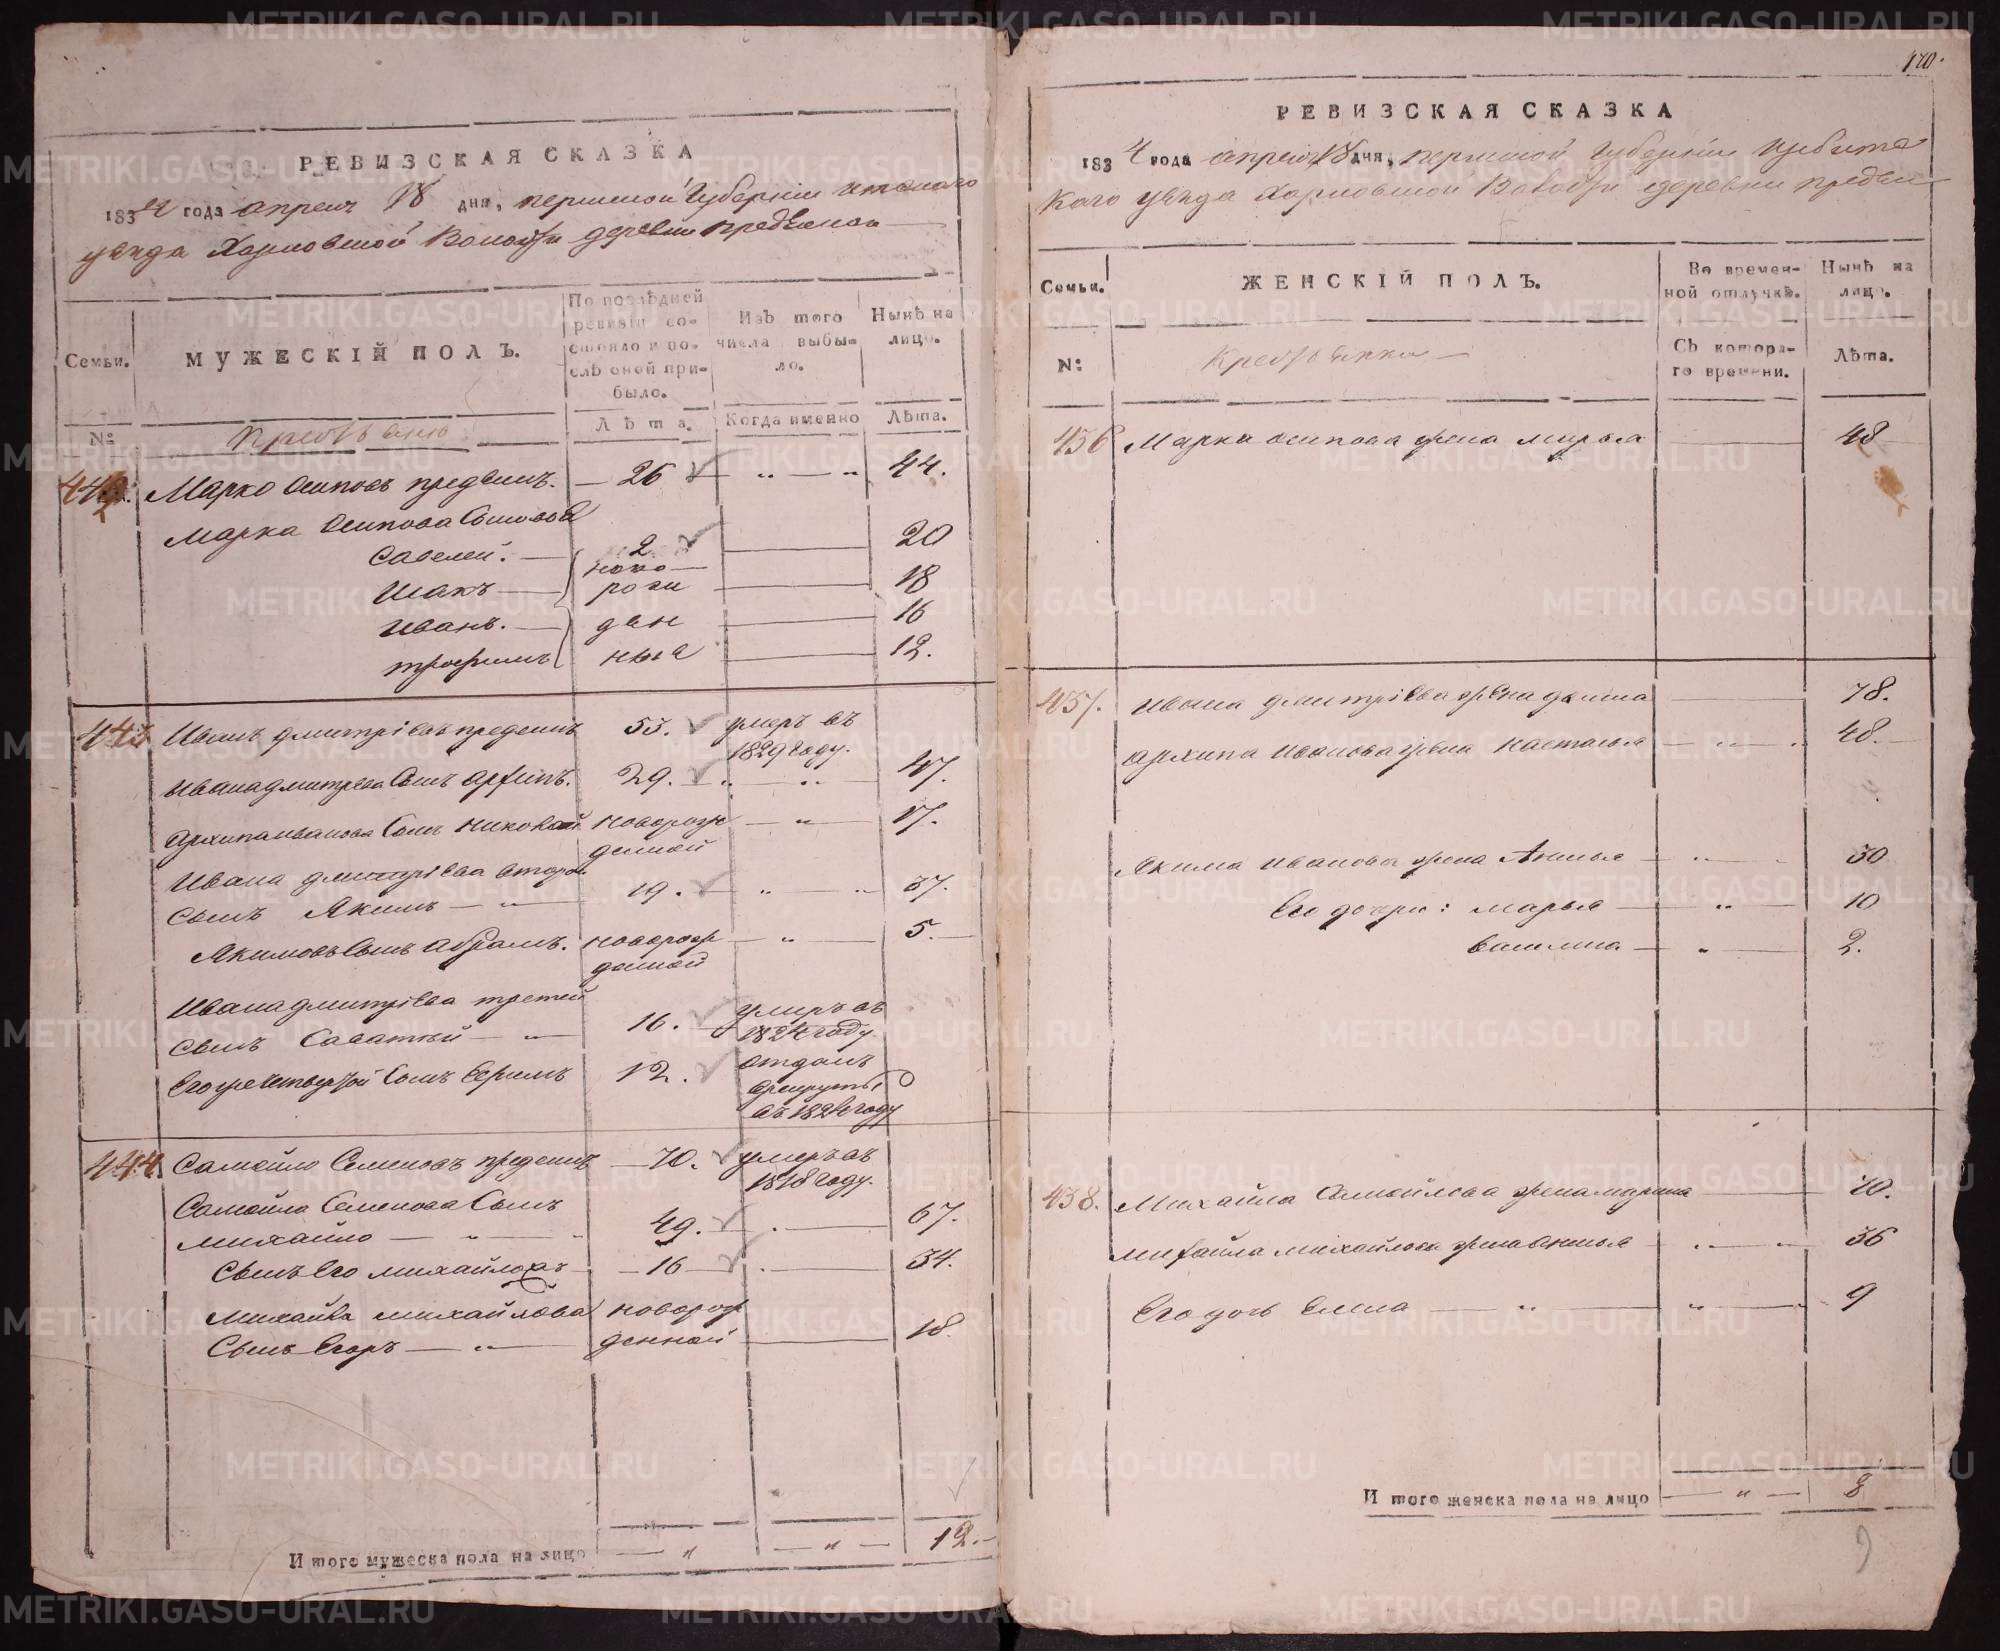 РЕВИЗСКАЯ СКАЗКА
1834 года апреля 18 дня, пермской губернии
уезда Харловской Волости деревни
Семьи.
МУЖЕСКІЙ ПОЛЪ.
По послѣдней ревизіи состояло и послѣ оной прибыло.
Изъ того числа выбыло.
Нынѣ на лицо.
№
Крестьяне
Лѣта.
Когда именно
Лѣта.
442. Марко Осиповъ предеинъ. — 26 — „ — „ 44.
Марка Осипова Сыновья
Савелей. — 2 — 20
Исакъ — ново 18
Иванъ. — рож 16
трофимъ ден ныя 12.
443 Иванъ дмитріевъ предеинъ 53. умеръ въ
1829 году.
Ивана дмитрева Сынъ архипъ. 29. — „ — „ 47.
Архипа иванова Сынъ николай новорож — „ — 17.
денной
Ивана дмитріева второй
Сынъ Якимъ — „ — 19. — „ — „ 37.
Якимовъ Сынъ абрамъ. новорож — „ — 5. —
денной
Ивана дмитріева третей
Сынъ Саватей — „ — 16. — умеръ въ
1824 году.
Его же четвертой Сынъ Ефимъ 12. отданъ
в рекруты
въ 1824 году
444. Самойло Семеновъ предеинъ — 70. умеръ въ
1818 году.
Самойла Семенова Сынъ
михайло — „ — „ 49. — . — 67.
Сынъ Его михайло — 16 — . — 34.
Михайла михайлова новорож
Сынъ Егоръ — „ — денной — 18.
И того мужеска пола на лицо — „ — „ — 12. —
170.
РЕВИЗСКАЯ СКАЗКА
1834 года апреля 18 дня, пермской губерніи Ирбитс
каго уѣзда Харловской Волости деревни
Семьи.
ЖЕНСКІЙ ПОЛЪ.
Во временной отлучкѣ.
Нынѣ на лицо.
№
Крестьянки —
Съ котораго времени.
Лѣта.
456 Марка осипова жена марья — 48
457. Ивана дмитріева жена — 78.
архипа иванова жена настасья — „ — „ 48. —
Якима иванова жена Анисья — „ — 30
Его дочери: марья — „ — 10
василиса — „ — 2.
458. Михайла Самойлова жена марина — 70.
михайла михайлова жена анисья — „ — „ 36
Его дочь — „ — „ — 9
И того женска пола на лицо — „ — 8
9
METRIKI.GASO-URAL.RU